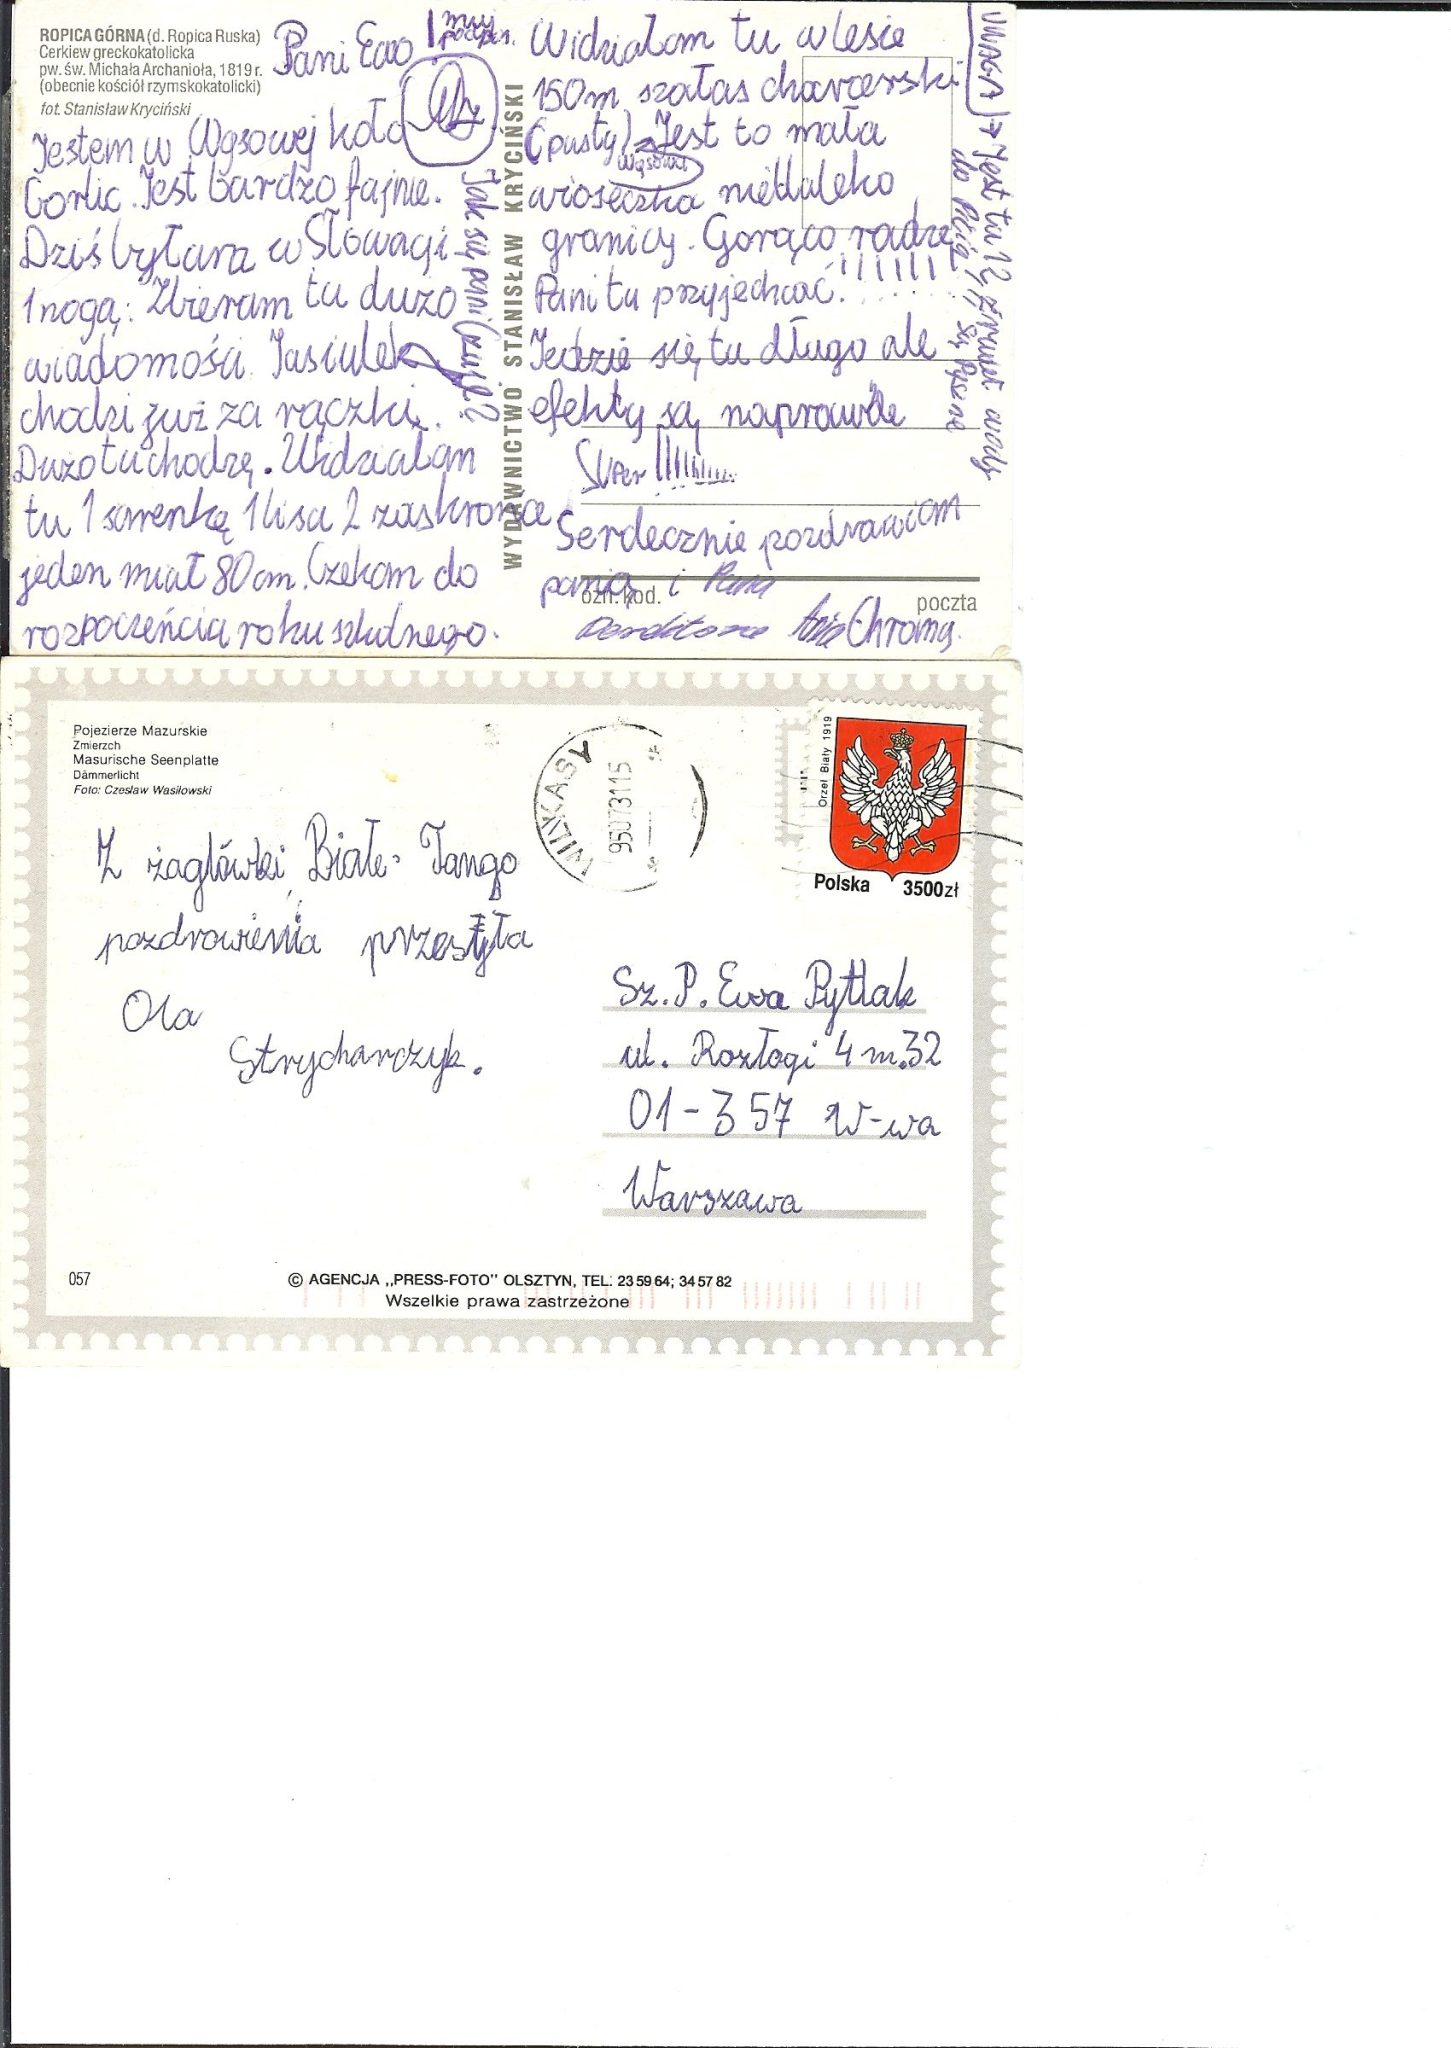 ROPICA GÓRNA (d. Ropica Ruska)
Cerkiew greckokatolicka
pw. św. Michała Archanioła, 1819 r.
(obecnie kościół rzymskokatolicki)
fot. Stanisław Kryciński
Pani Ewo
muj
podpis.
Jestem w Wąsowej koło
Gorlic. Jest bardzo fajnie.
Dziś byłam w Słowagi
1 nogą: Zbieram tu dużo
wiadomości. Jasiulek
chodzi już za rączki.
Dużo tu chodzę. Widziałam
tu 1 sarenkę 1 lisa 2 zaskrońce
jeden miał 80 cm. Czekam do
rozpoczeńcia roku szkolnego.
Jak się pani czuje?
WYDAWNICTWO STANISŁAW KRYCIŃSKI
Widziałam tu w lesie
150 m szałas charcerski
(pusty) Jest to mała
Wąsowa
wioseczka niedaleko
granicy. Gorąco radzę
Pani tu przyjechać!!!!!!!
Jedzie się tu długo ale
efekty są naprawde
super!!!!!!!!!
Serdecznie pozdrawiam
panią i Pana
ozn. kod.
poczta
Ania Chroma.
UWAGA → Jest tu 12 źrawdeł wody
do Picia, są Pyszne
Pojezierze Mazurskie
Zmierzch
Masurische Seenplatte
Dämmerlicht
Foto: Czesław Wasiłowski
WILKASY
95073115
Orzeł Biały 1919
Polska 3500 zł
Z żaglówki Białe-Tango
pozdrowienia przesyła
Ola
Strycharczyk.
Sz. P. Ewa Pytlak
ul. Rozłogi 4 m.32
01-357 W-wa
Warszawa
057
© AGENCJA „PRESS-FOTO" OLSZTYN, TEL: 23 59 64; 34 57 82
Wszelkie prawa zastrzeżone